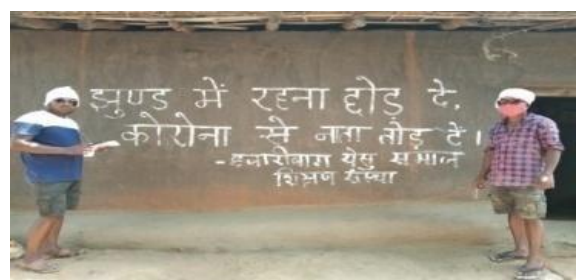 झुण्ड में रहना छोड़ दे,
कोरोना से नाता तोड़ दे।
- हजारीबाग येसु समाज
शिक्षण संस्था